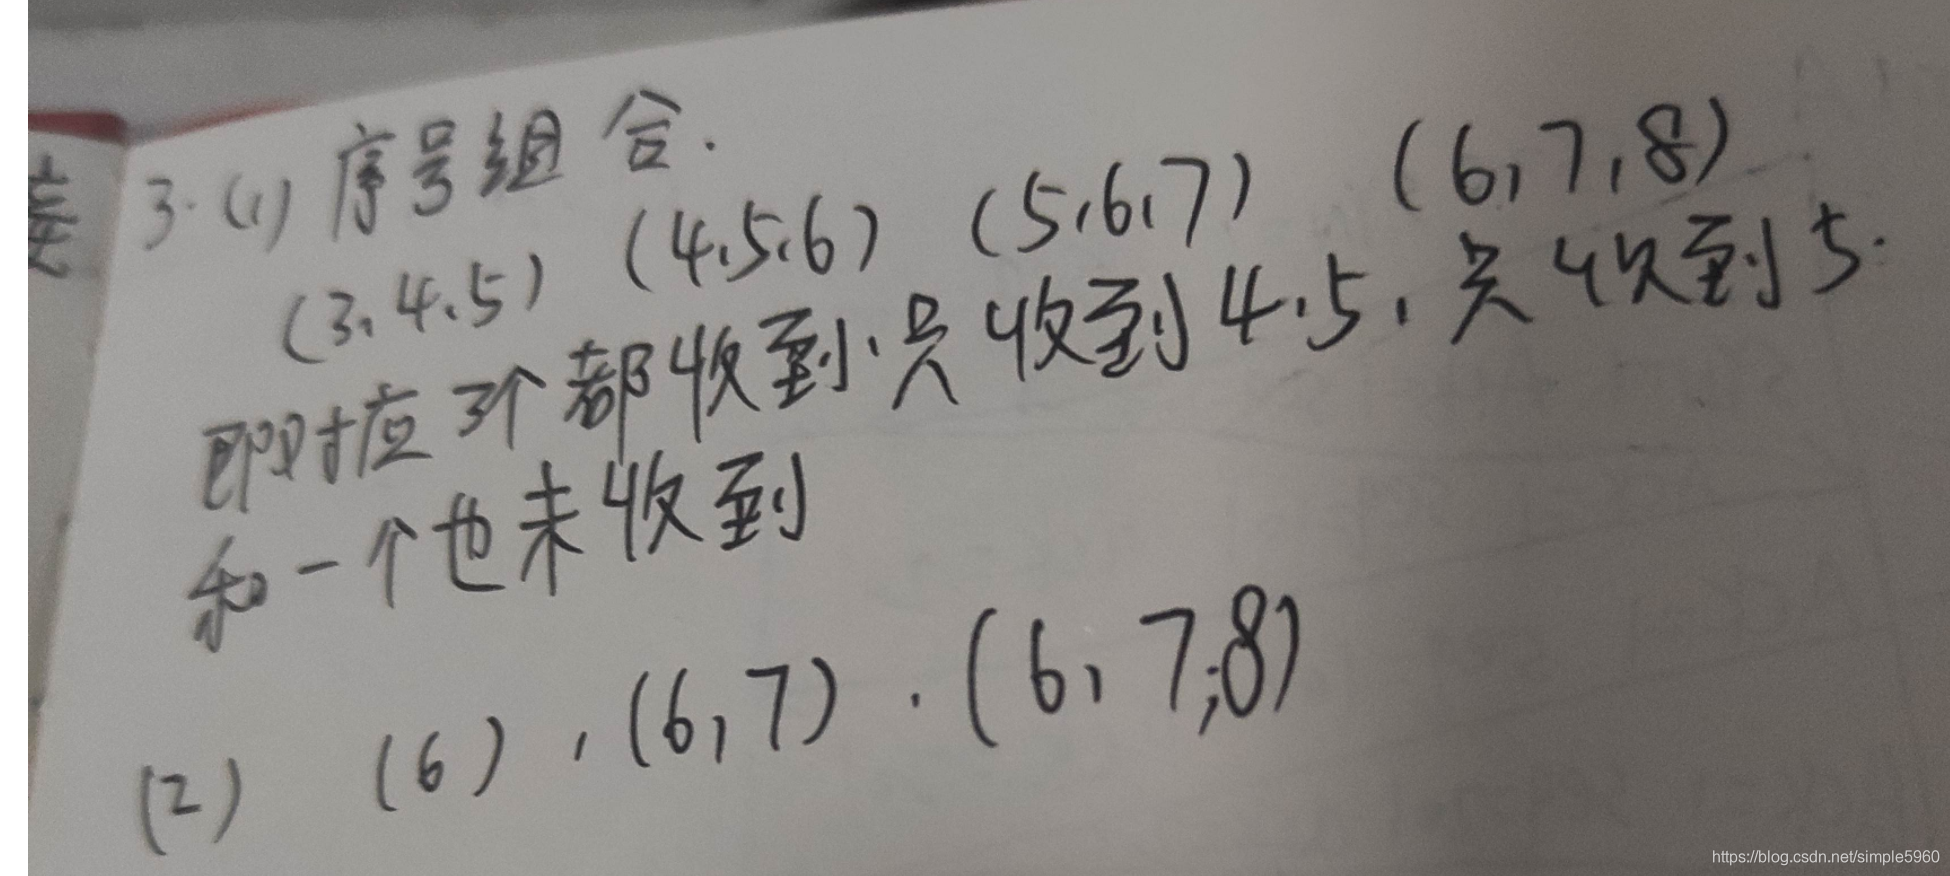 3.(1) 序号组合.
(3,4,5) (4,5,6) (5,6,7) (6,7,8)
即对应3个都收到、只收到4,5,只收到5.
和一个也未收到
(2) (6),(6,7).(6,7,8)
https://blog.csdn.net/simple5960